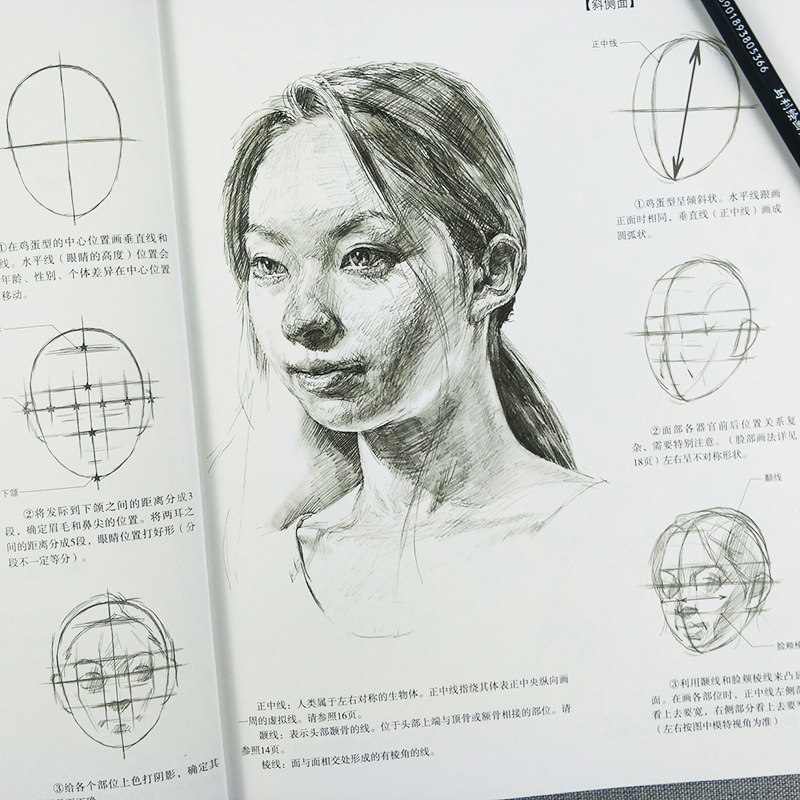 ①在鸡蛋型的中心位置画垂直线和
线。水平线（眼睛的高度）位置会
年龄、性别、个体差异在中心位置
移动。
下颌
②将发际到下颌之间的距离分成3
段，确定眉毛和鼻尖的位置。将两耳之
间的距离分成5段，眼睛位置打好形（分
段不一定等分）。
③给各个部位上色打阴影，确定其
正中线：人类属于左右对称的生物体。正中线指绕其体表正中央纵向画
一周的虚拟线。请参照16页。
颞线：表示头部颞骨的线。位于头部上端与顶骨或额骨相接的部位。请
参照14页。
棱线：面与面相交处形成的有棱角的线。
【斜侧面】
正中线
①鸡蛋型呈倾斜状。水平线跟画
正面时相同，垂直线（正中线）画成
圆弧状。
②面部各器官前后位置关系复
杂，需要特别注意。（脸部画法详见
18页）左右呈不对称形状。
颞线
脸颊棱
③利用颞线和脸颊棱线来凸显
面。在画各部位时，正中线左侧部
看上去要宽，右侧部分看上去要窄
（左右按图中模特视角为准）
6901893805366
马利绘画